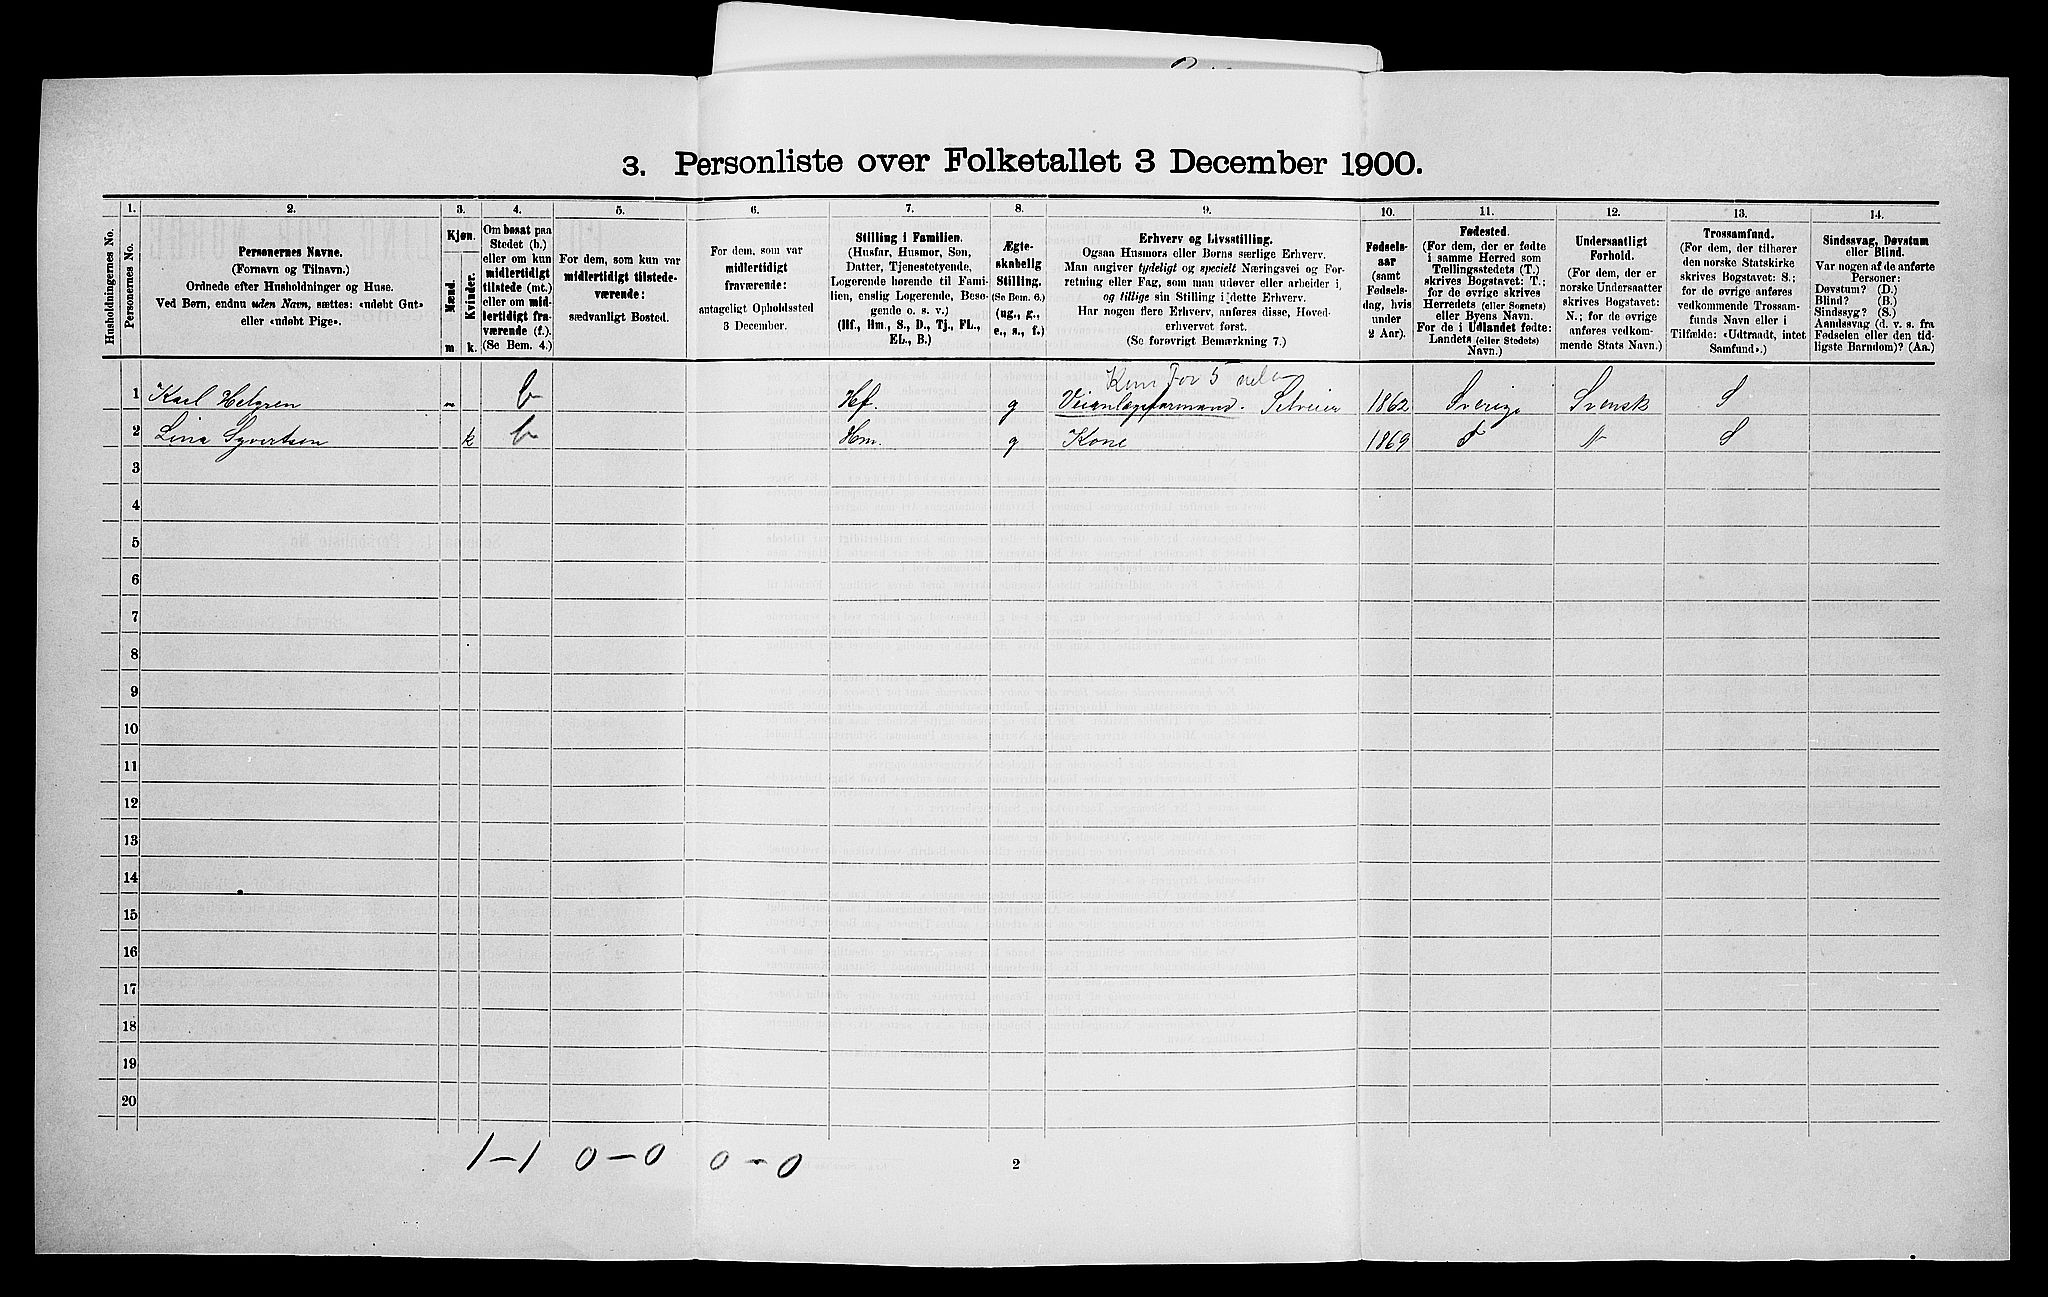 3. Personliste over Folketallet 3 December 1900.
Husholdningernes No.
1.
Personernes No.
2.
Personernes Navne.
(Fornavn og Tilnavn.)
Ordnede efter Husholdninger og Huse.
Ved Børn, endnu uden Navn, sættes: «udøbt Gut»
eller «udøbt Pige».
3.
Kjøn.
Mænd.
Kvinder.
m
k.
4.
Om bosat paa
Stedet (b.)
eller om kun
midlertidigt
tilstede (mt.)
eller om mid-
lertidigt fra-
værende (f.).
(Se Bem. 4.)
5.
For dem, som kun var
midlertidigt tilstede-
værende:
sædvanligt Bosted.
6.
For dem, som var
midlertidigt
fraværende:
antageligt Opholdssted
3 December.
7.
Stilling i Familien.
(Husfar, Husmor, Søn,
Datter, Tjenestetyende,
Logerende hørende til Fami-
lien, enslig Logerende, Besø-
gende o. s. v.)
(Hf., Hm., S., D., Tj., FL.,
EL., B.)
8.
Ægte-
skabelig
Stilling.
(Se Bem. 6.)
(ug., g.,
e., s., f.)
9.
Erhverv og Livsstilling.
Ogsaa Husmors eller Børns særlige Erhverv.
Man angiver tydeligt og specielt Næringsvei og For-
retning eller Fag, som man udøver eller arbeider i,
og tillige sin Stilling i dette Erhverv.
Har nogen flere Erhverv, anføres disse, Hoved-
erhvervet først.
(Se forøvrigt Bemærkning 7.)
10.
Fødsels-
aar
(samt
Fødsels-
dag, hvis
under
2 Aar).
11.
Fødested.
(For dem, der er fødte
i samme Herred som
Tællingsstedets (T.)
skrives Bogstavet: T.;
for de øvrige skrives
Herredets (eller Sognets)
eller Byens Navn.
For de i Udlandet fødte:
Landets (eller Stedets)
Navn.)
12.
Undersaatligt
Forhold.
(For dem, der er
norske Undersaatter
skrives Bogstavet:
N.; for de øvrige
anføres vedkom-
mende Stats Navn.)
13.
Trossamfund.
(For dem, der tilhører
den norske Statskirke
skrives Bogstavet: S.;
for de øvrige anføres
vedkommende Trossam-
funds Navn eller i
Tilfælde: «Udtraadt, intet
Samfund».)
14.
Sindssvag, Døvstum
eller Blind.
Var nogen af de anførte
Personer:
Døvstum? (D.)
Blind? (B.)
Sindssyg? (S.)
Aandssvag (d. v. s. fra
Fødselen eller den tid-
ligste Barndom)? (Aa.)
1 Karl Helgren m b Hf. g Veianlægsformand. Selveier 1862 Sverige Svensk S
2 Lina Syvertsen k b Hm. g Kone 1869 N S
3
4
5
6
7
8
9
10
11
12
13
14
15
16
17
18
19
20
1-1 0-0 0-0
2